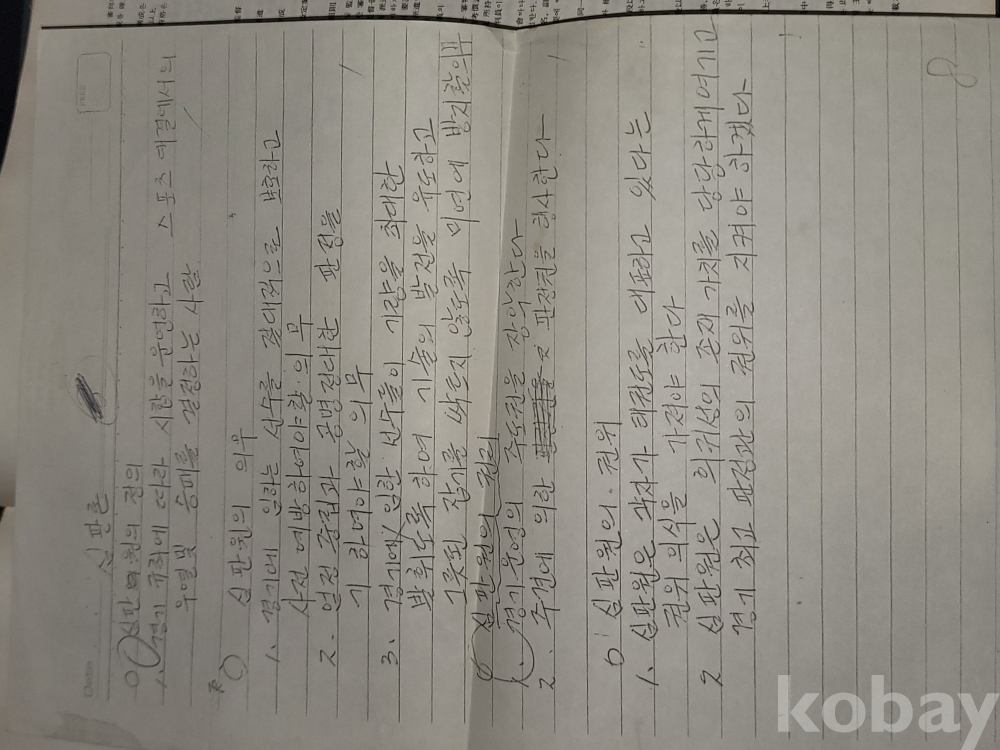 심판론
○ 심판원의 정의
1. 경기 규칙에 따라 시합을 운영하고 스포츠 대결에서의
우열및 승패를 결정하는 사람
○ 심판원의 의무
1. 경기에 임하는 선수를 절대적으로 보호하고
사전 예방하여야할 의무
2. 엄정 중립과 공명정대한 판정을
기 하여야할 의무
3. 경기에 임한 선수들이 기량을 최대한
발휘도록 하여 기술의 발전을 유도하고
그릇된 잡기를 빠르지 않도록 미연에 방지할의무
○ 심판원의 권리
1. 경기운영의 주도권을 장악한다
2. 주견에 의한 판정권을 행사한다
○ 심판원의 권위
1. 심판원은 각자가 태권도를 대표하고 있다는
권위 의식을 가져야 한다
2 심판원은 희귀성의 존재 가치를 당당하게여기고
경기 최고 판정관의 권위를 지켜야 하겠다
8
kobay